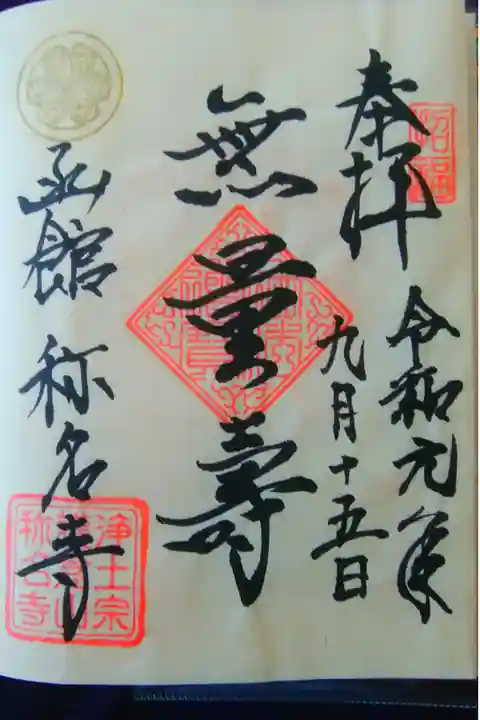 奉拝
招福
令和元年
九月十五日
無量壽
函館 称名寺
浄土宗
称名寺